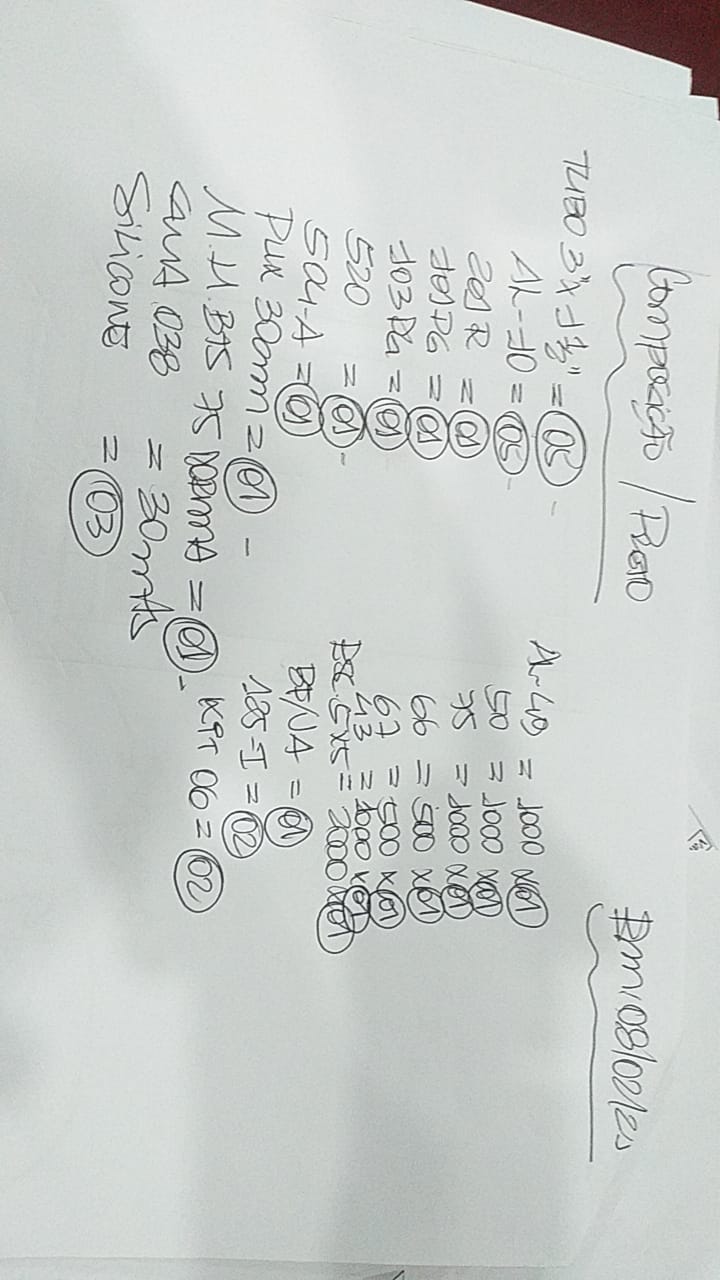 Composição / Preto
Em: 08/02/23
TUBO 3" x 1 1/2" = 05 -
AL-10 = 05 -
201 R = 01
101 PG = 01
103 PG = 01
520 = 01 -
504-A = 01
PUX 30mm = 01 -
M.H. BTS 75 NORMA = 01 -
GUA 038 = 30 mts
Silicone = 03
AL-40 = 1000 x 01
50 = 1000 x 01
75 = 1000 x 01
66 = 500 x 01
67 = 500 x 01
43 = 1000 x 01
ESC. 5x5 = 2000 x 01
BF/JA = 01
185-I = 02
KIT 06 = 02